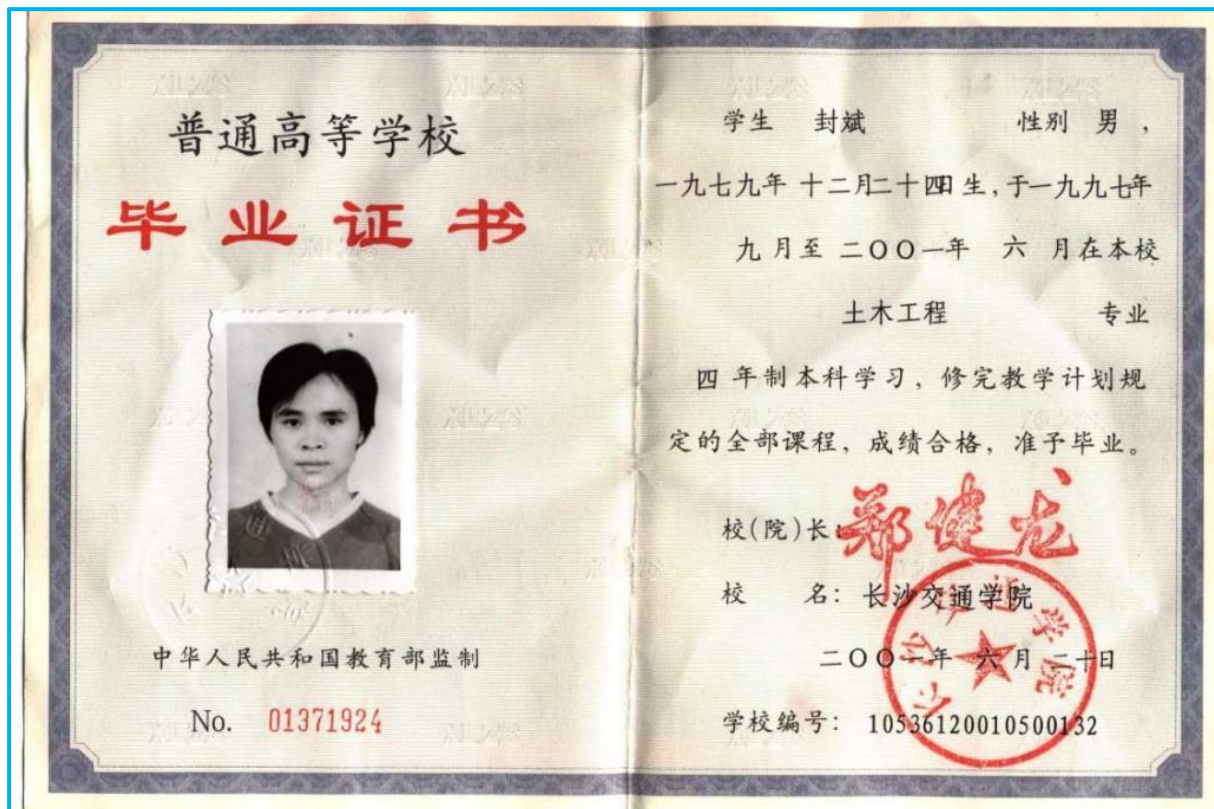 普通高等学校
毕业证书
中华人民共和国教育部监制
No. 01371924
学生 封斌 性别 男，
一九七九年 十二月二十四日生，于一九九七年
九月至 二〇〇一年 六 月在本校
土木工程 专业
四 年制本科学习，修完教学计划规
定的全部课程，成绩合格，准予毕业。
校(院)长：郑健龙
校 名：长沙交通学院
二〇〇一年 六月 二十日
学校编号：10536120010500132
长沙交通学院